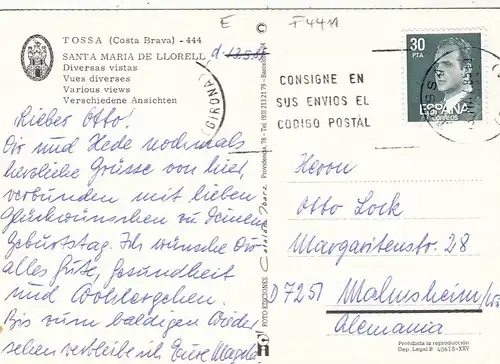 E
F4411
TOSSA (Costa Brava) - 444
SANTA MARIA DE LLORELL
Diversas vistas
Vues diverses
Various views
Verschiedene Ansichten
(GIRONA)
CONSIGNE EN
SUS ENVIOS EL
CODIGO POSTAL
30
PTA
ESPAÑA
CORREOS
Lieber Otto!
Dir und Hede nochmals
herzliche Grüsse von hier,
verbunden mit lieben
Glückwünschen zu Deinem
Geburtstag. Ich wünsche Dir
alles Gute, Gesundheit
und Wohlergehen.
Bis zum baldigen Wieder
sehen verbleibe ich Eure Magda
©
FOTO EDICIONES
Herrn
Otto Lock
Margaritenstr. 28
D 7251 Malmsheim/
Alemania
Prohibida la reproducción
Dep. Legal B 40613-XXV